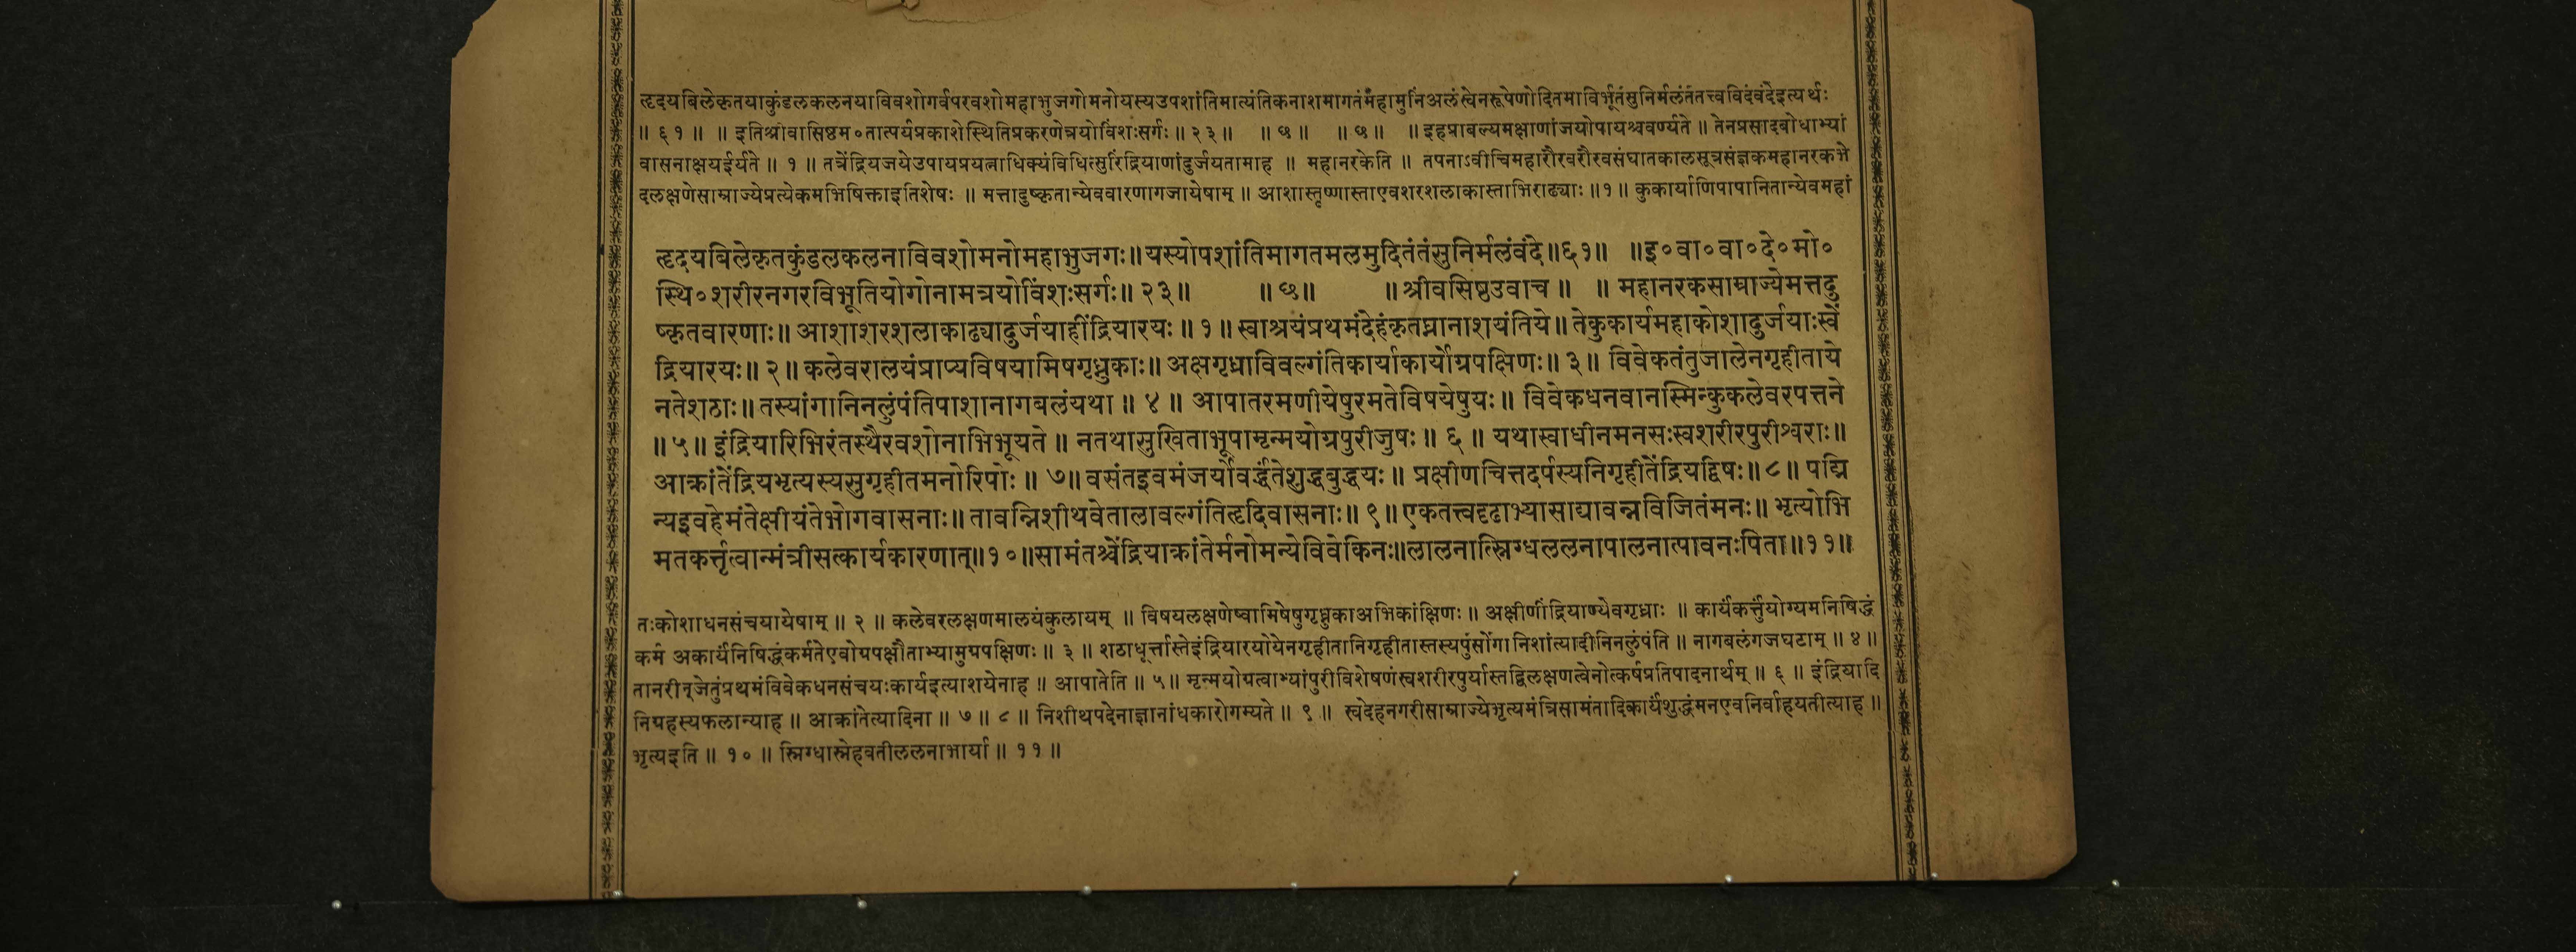 हृदयबिलेकृतयाकुंडलकलनयाविवशोगर्वपरवशोमहाभुजगोमनोयस्यउपशांतिमात्यंतिकनाशमागतंमहामुनिंअलंस्वेनरूपेणोदितमाविर्भूतंसुनिर्मलंतंतत्त्वविदंवंदेइत्यर्थः
॥ ६१ ॥ ॥ इतिश्रीवासिष्ठम०तात्पर्यप्रकाशेस्थितिप्रकरणेत्रयोविंशःसर्गः ॥ २३ ॥ ॥ छ ॥ ॥ छ ॥ ॥ इहप्राबल्यमक्षाणांजयोपायश्चवर्ण्यते ॥ तेनप्रसादबोधाभ्यां
वासनाक्षयईर्यते ॥ १ ॥ तत्रेंद्रियजयेउपायप्रयत्नाधिक्यंविधित्सुरिंद्रियाणांदुर्जयतामाह ॥ महानरकेति ॥ तपनाऽवीचिमहारौरवरौरवसंघातकालसूत्रसंज्ञकमहानरकभे
दलक्षणेसाम्राज्येप्रत्येकमभिषिक्ताइतिशेषः ॥ मत्तादुष्कृतान्येववारणागजायेषाम् ॥ आशास्तृष्णास्ताएवशरशलाकास्ताभिराढ्याः ॥१॥ कुकार्याणिपापानितान्येवमहां
हृदयबिलेकृतकुंडलकलनाविवशोमनोमहाभुजगः॥यस्योपशांतिमागतमलमुदितंतंसुनिर्मलंवंदे॥६१॥ ॥इ०वा०वा०दे०मो०
स्थि०शरीरनगरविभूतियोगोनामत्रयोविंशःसर्गः॥ २३॥ ॥ छ॥ ॥ श्रीवसिष्ठउवाच ॥ ॥ महानरकसाम्राज्येमत्तदु
ष्कृतवारणाः॥ आशाशरशलाकाढ्यादुर्जयाहींद्रियारयः ॥ १॥ स्वाश्रयंप्रथमंदेहंकृतघ्नानाशयंतिये॥ तेकुकार्यमहाकोशादुर्जयाःस्वें
द्रियारयः॥ २॥ कलेवरालयंप्राप्यविषयामिषगृध्नुकाः॥ अक्षगृध्राविवल्गंतिकार्याकार्योग्रपक्षिणः॥ ३॥ विवेकतंतुजालेनगृहीताये
नतेशठाः॥ तस्यांगानिनलुंपंतिपाशानागबलंयथा ॥ ४ ॥ आपातरमणीयेषुरमतेविषयेषुयः॥ विवेकधनवानस्मिन्कुकलेवरपत्तने
॥ ५॥ इंद्रियारिभिरंतस्थैरवशोनाभिभूयते ॥ नतथासुखिताभूपामृन्मयोग्रपुरीजुषः॥ ६ ॥ यथास्वाधीनमनसःस्वशरीरपुरीश्वराः॥
आक्रांतेंद्रियभृत्यस्यसुगृहीतमनोरिपोः ॥ ७॥ वसंतइवमंजर्योवर्द्धंतेशुद्धबुद्धयः ॥ प्रक्षीणचित्तदर्पस्यनिगृहीतेंद्रियद्विषः॥८॥ पद्मि
न्यइवहेमंतेक्षीयंतेभोगवासनाः॥ तावन्निशीथवेतालावल्गंतिहृदिवासनाः॥ ९॥ एकतत्त्वदृढाभ्यासाद्यावन्नविजितंमनः॥ भृत्योभि
मतकर्त्तृत्वान्मंत्रीसत्कार्यकारणात्॥१०॥सामंतश्चेंद्रियाक्रांतेर्मनोमन्येविवेकिनः॥लालनात्स्निग्धललनापालनात्पावनःपिता॥११॥
तःकोशाधनसंचयायेषाम् ॥ २ ॥ कलेवरलक्षणमालयंकुलायम् ॥ विषयलक्षणेष्वामिषेषुगृध्नुकाअभिकांक्षिणः ॥ अक्षीणींद्रियाण्येवगृध्राः ॥ कार्यंकर्त्तुंयोग्यमनिषिद्धं
कर्म अकार्यंनिषिद्धंकर्मतेएवोग्रपक्षौताभ्यामुग्रपक्षिणः ॥ ३ ॥ शठाधूर्त्तास्तेइंद्रियारयोयेनगृहीतानिगृहीतास्तस्यपुंसोंगानिशांत्यादीनिनलुंपंति ॥ नागबलंगजघटाम् ॥ ४ ॥
तानरीन्जेतुंप्रथमंविवेकधनसंचयःकार्यइत्याशयेनाह ॥ आपातेति ॥ ५॥ मृन्मयोग्रत्वाभ्यांपुरीविशेषणंस्वशरीरपुर्यास्तद्विलक्षणत्वेनोत्कर्षप्रतिपादनार्थम् ॥ ६ ॥ इंद्रियादि
निग्रहस्यफलान्याह ॥ आक्रांतेत्यादिना ॥ ७ ॥ ८ ॥ निशीथपदेनाज्ञानांधकारोगम्यते ॥ ९ ॥ स्वदेहनगरीसाम्राज्येभृत्यमंत्रिसामंतादिकार्यंशुद्धंमनएवनिर्वाहयतीत्याह ॥
भृत्यइति ॥ १० ॥ स्निग्धास्नेहवतीललनाभार्या ॥ ११ ॥